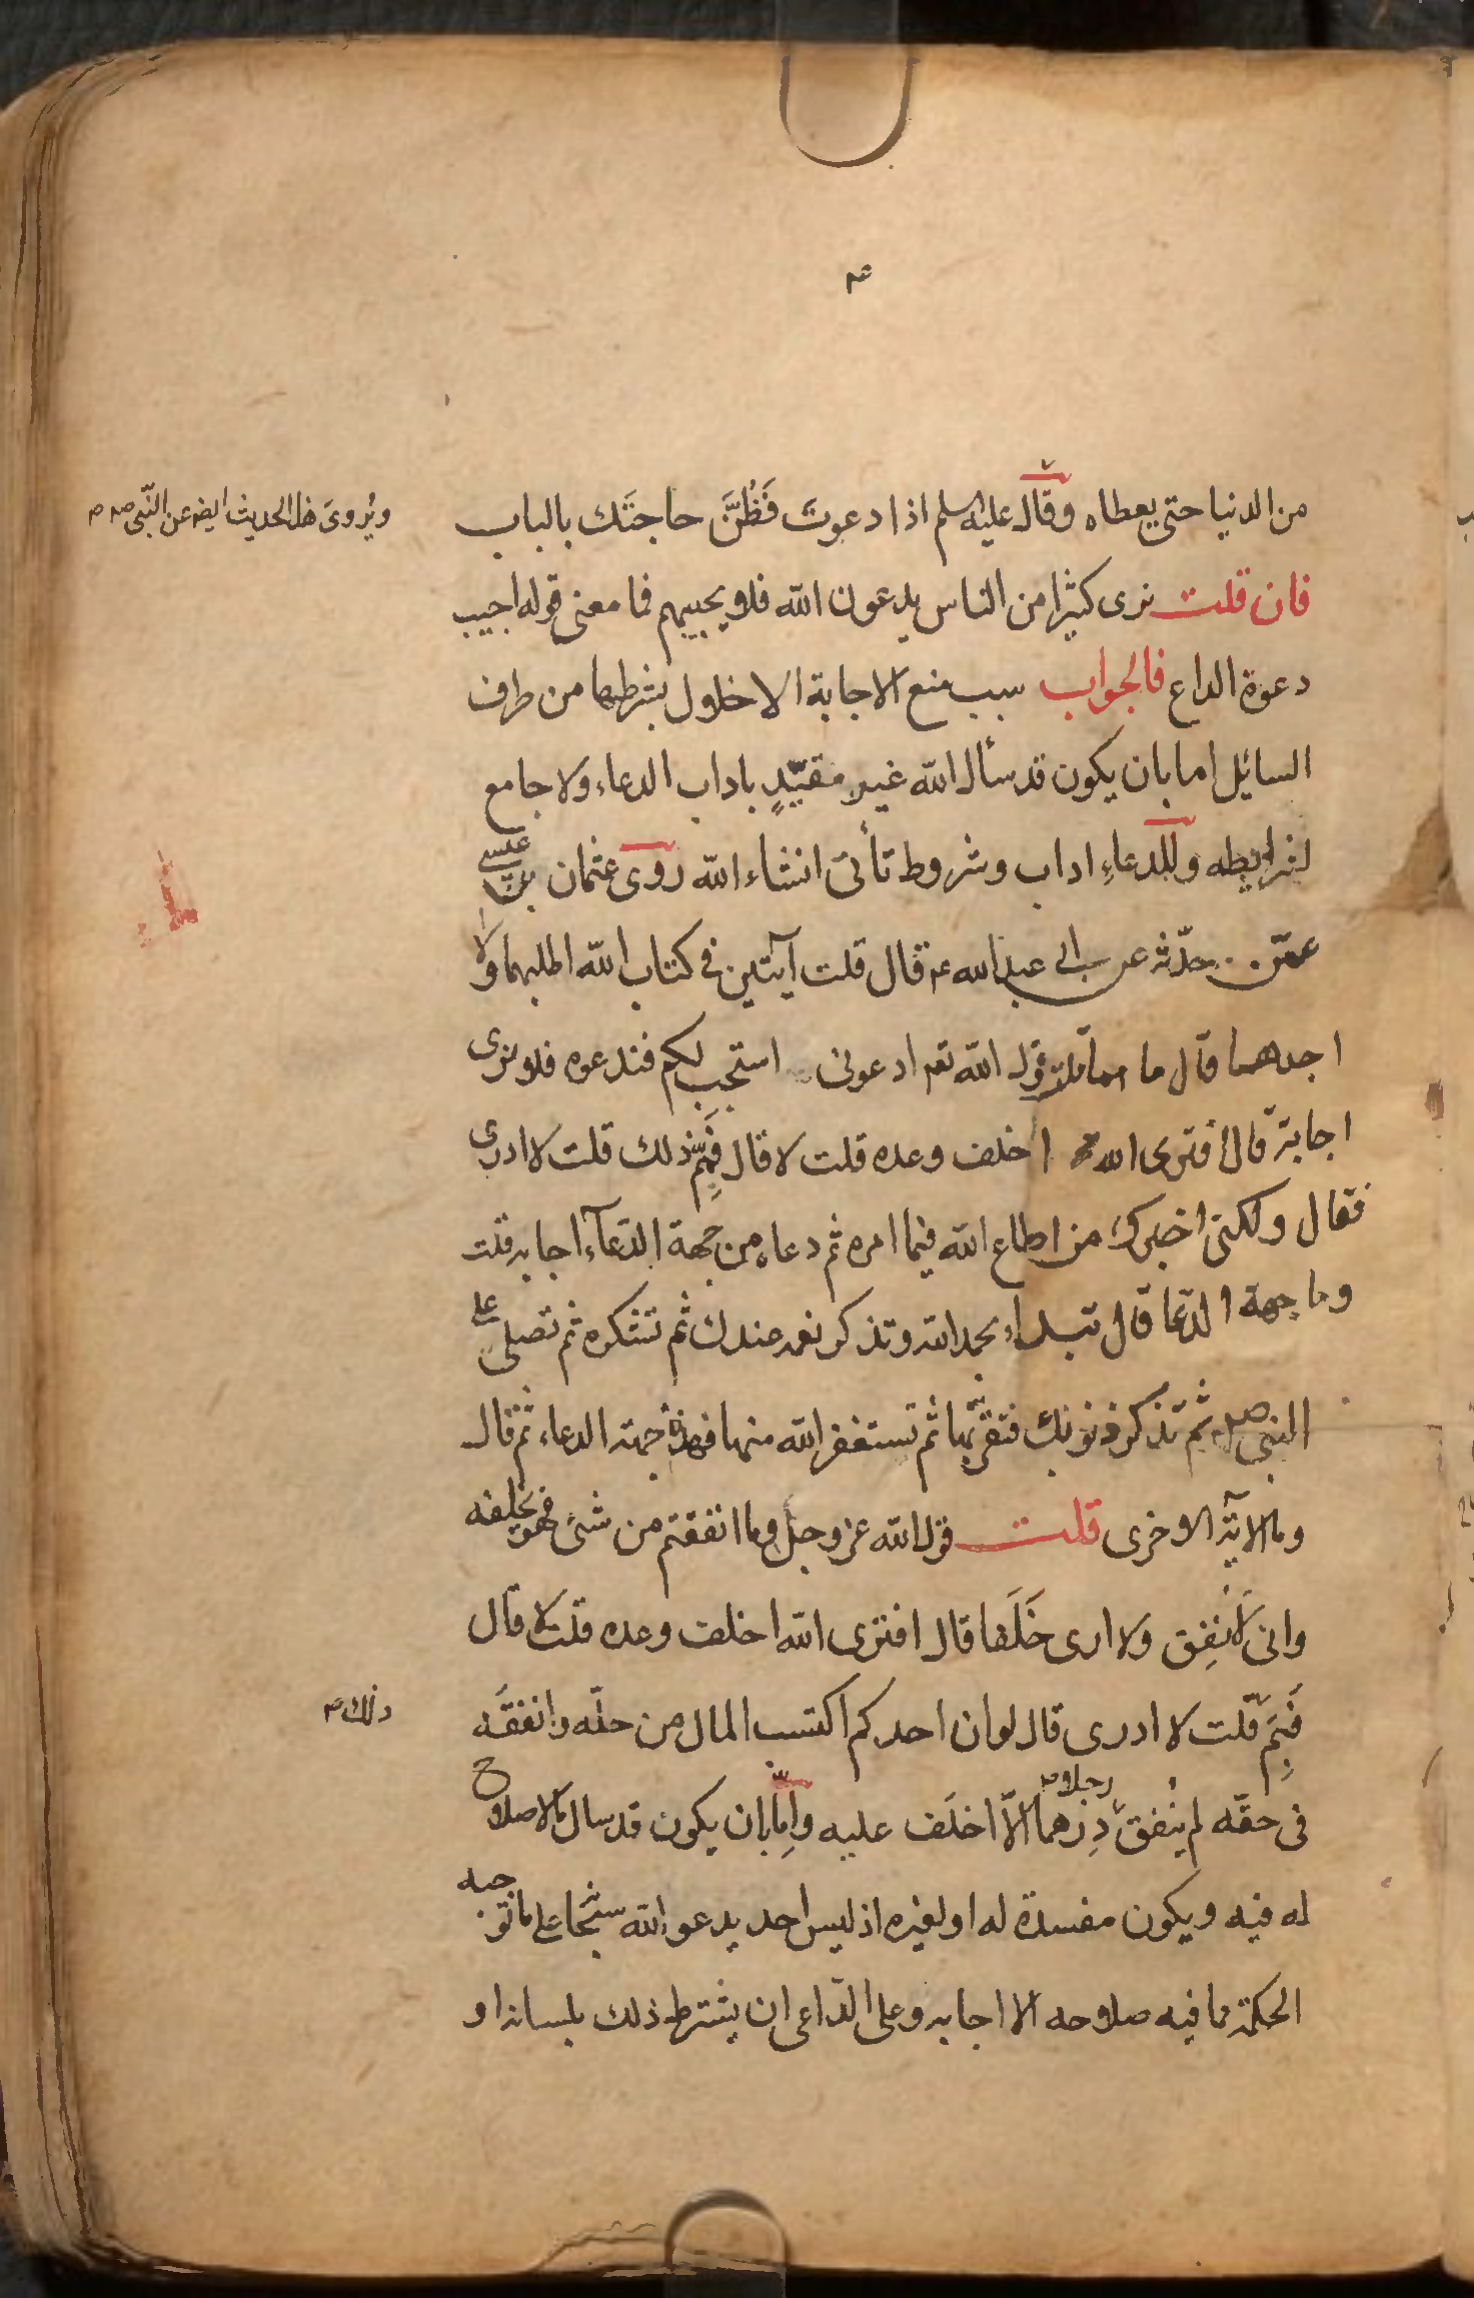 من الدنيا حتى يعطاه وقال عليه السلم اذا دعوت فَظُنَّ حاجتَك بالباب
ويُروىَ هذا الحديث ايضا عن النّبى
فان قلت نرى كثيرا من الناس يدعون الله فلا يجيبهم فما معنى قوله اجيب
دعوة الداع فالجواب سبب منع الاجابة الاخلال بشرطها من طرف
السائيل اما بان يكون قد سأل الله غير مقيّدٍ باداب الدعاء ولا جامع
لشرايطه وللدعاءِ اداب وشروط تأتى انشاء الله روى عثمان بن عيسى
عمّن حدّثه عن ابى عبد الله ع قال قلت آيتين فى كتاب الله اطلبهما ولا
اجدهما قال ما هما قلت قول الله تعه ادعونى استجب لكم فندعوه فلا نرى
اجابة قال أفترى الله اخلف وعده قلت لا قال فَمِمَّ ذلك قلت لا ادرى
فقال ولكنى اخبرك من اطاع الله فيما امره ثم دعاه من جهة الدّعآء اجابه قلت
وما جهة الدّعا قال تبداء بحمد الله وتذكر نعمه عندك ثم تشكره ثم تصلى على
النبى صلم ثم تذكر ذنوبك فتقرّبها ثم تستغفر الله منها فهذه جهة الدعاء ثم قال
وما الاية الاخرى قلت قول الله عز وجل وما انفقتم من شئ فهو يخلفه
وانى لَاُنفِق ولا ارى خَلَفا قال افترى الله اخلف وعده قلت لا قال
فَمِمَّ قلت لا ادرى قال لو ان احدكم اكتسب المال من حلّه وانفقَه
ذلك
فى حقّه لم ينُفق رجل درهما الاّ اخلَف عليه وامّا بان يكون قد سال ما لا صلاح
له فيه ويكون مفسدة له او لغيره اذ ليس احد يدعو الله شيئا على ما توجبه
الحكمة مما فيه صلاحه الا اجابه وعلى الدّاعى ان يشترط ذلك بلسانه او